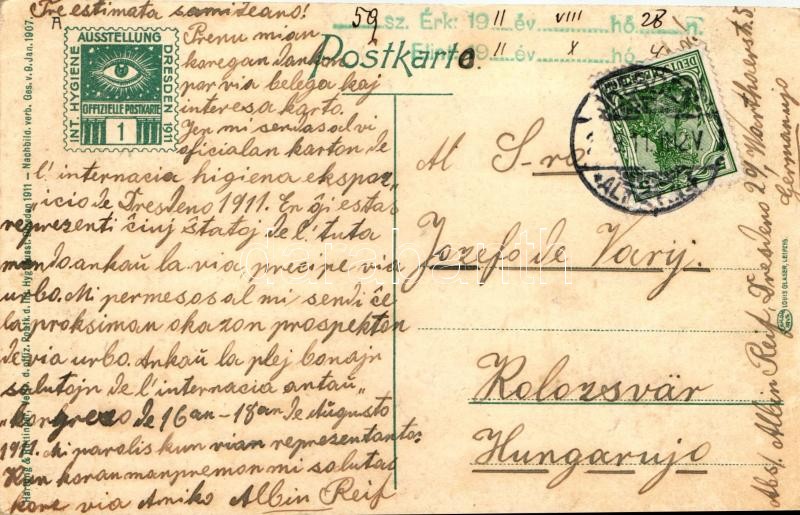 Tre estimata samideano!
Prenu mian
koregan dankon
por via belega kaj
interesa karto.
Jen mi sendas al vi
oficialan karton de
l'internacia higiena ekspoz,,
"icio de Dresdeno 1911. En ĝi estas
reprezenti ĉiuj ŝtatoj de l'tuta
mondo ankaŭ la via, precipe via
urbo. Mi permesos al mi sendi ĉe
la proksiman okazon prospekton
de via urbo. Ankaŭ la plej bonajn
salutojn de l'internacia antaŭ,,
"kongreso de 16an - 18an de Aŭgusto
1911. Mi parolis kun vian reprezentanto.
Kun koran manpremon mi salutas
kore via Amiko Albin Reif
A
59
sz. Érk: 1911 év VIII hó 28 n.
1911 év X hó 4
Postkarte.
INT. HYGIENE
AUSSTELLUNG
DRESDEN 1911
OFFIZIELLE POSTKARTE
1
Nachbild. verb. Ges. v. 9. Jan. 1907.
DEUTSCHES REICH
Al S-ro
Jozefo de Varij.
Kolozsvár
Hungarujo
LOUIS GLASER, LEIPZIG
Abs/. Albin Reif Dresdeno 29, Warthaerstr. 5
Germanujo
darabanth